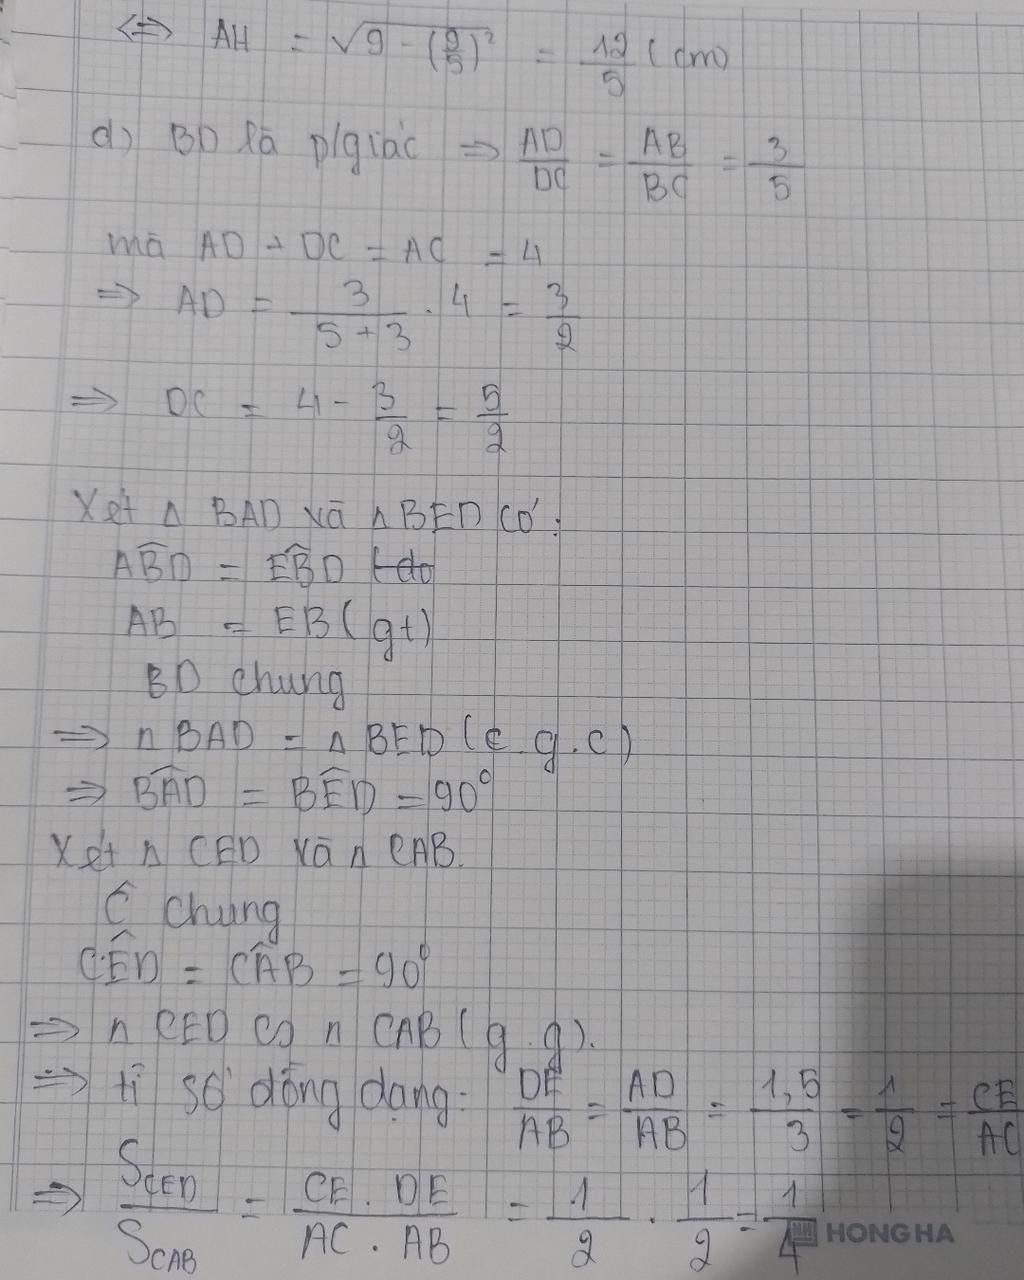 <=> AH = √9 - (9/5)² = 12/5 (cm)
d) BD là p/giác => AD/DC = AB/BC = 3/5
mà AD + DC = AC = 4
=> AD = 3/(5 + 3) . 4 = 3/2
=> DC = 4 - 3/2 = 5/2
Xét Δ BAD và Δ BED có:
AB̂D = EB̂D (do
AB = EB (gt)
BD chung
=> Δ BAD = Δ BED (c.g.c)
=> BÂD = BÊD = 90°
Xét Δ CED và Δ CAB.
Ĉ chung
CÊD = CÂB = 90°
=> Δ CED ∽ Δ CAB (g.g).
=> tỉ số đồng dạng: DE/AB = AD/AB = 1,5/3 = 1/2 = CE/AC
=> S_CED/S_CAB = CE . DE/AC . AB = 1/2 . 1/2 = 1/4
HONG HA